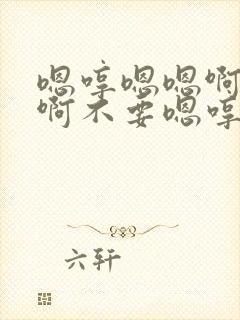 嗯哼嗯嗯啊
啊不要嗯哼
六轩